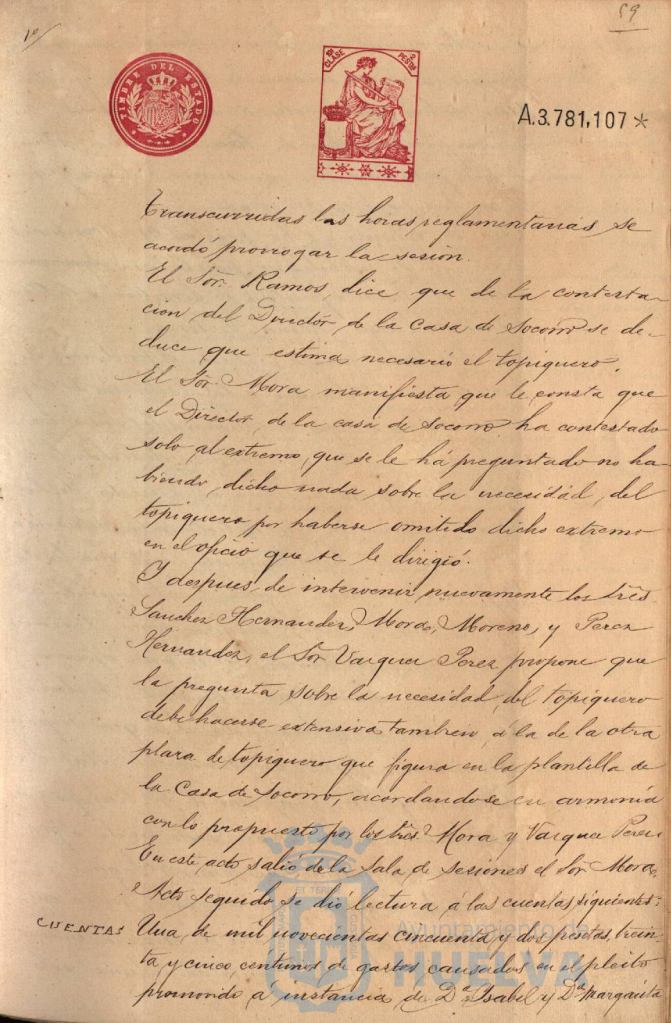 59
1º/
TIMBRE DEL ESTADO
CLASE
PESETAS
A.3.781,107*
transcurridas las horas reglamentarias se
acordó prorrogar la sesión.
El Sor. Ramos, dice que de la contesta-
cion del Director de la Casa de Socorro se de-
duce que estima necesario el topiquero.
El Sor. Mora manifiesta que le consta que
el Director de la casa de Socorro ha contestado
solo al extremo que se le há preguntado no ha-
biendo dicho nada sobre la necesidad del
topiquero por haberse omitido dicho extremo
en el oficio que se le dirigió.
Y despues de intervenir nuevamente los Srês.
Sanchez Hernandez, Mora, Moreno, y Perez
Hernandez, el Sor Vazquez Perez propone que
la pregunta sobre la necesidad del topiquero
debe hacerse extensiva tambien á la de la otra
plaza de topiquero que figura en la plantilla de
la Casa de Socorro, acordandose en armonía
con lo propuesto por los Srês. Mora y Vazquez Perez.
En este acto salió de la Sala de sesiones el Sor Mora.
Acto seguido se dió lectura á las cuentas siguientes:
CUENTAS
Una de mil novecientas cincuenta y dos pesetas, trein-
ta y cinco centimos de gastos causados en el pleito
promovido a instancia de Dª Isabel y Dª Margarita
Ayuntamiento de
HUELVA